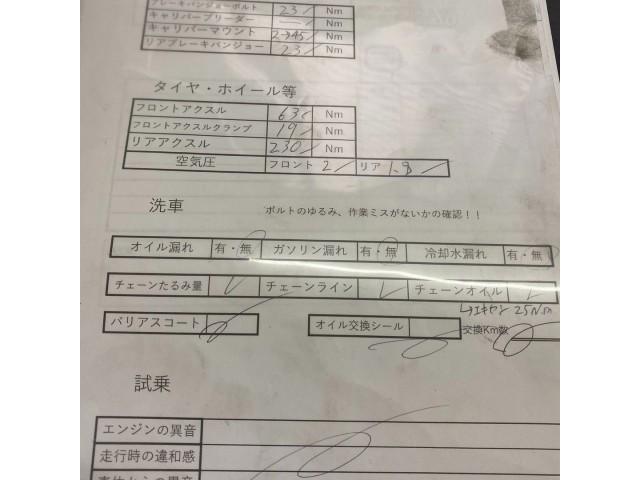 ブレーキバンジョーボルト 23 Nm
キャリパーブリーダー Nm
キャリパーマウント Nm
リアブレーキバンジョー 23 Nm
タイヤ・ホイール等
フロントアクスル 63 Nm
フロントアクスルクランプ 19 Nm
リアアクスル 230 Nm
空気圧 フロント 2 リア 1.8
洗車 ボルトのゆるみ、作業ミスがないかの確認！！
オイル漏れ 有・無 ガソリン漏れ 有・無 冷却水漏れ 有・無
チェーンたるみ量 チェーンライン チェーンオイル
25Nm
バリアスコート オイル交換シール 交換Km数
試乗
エンジンの異音
走行時の違和感
車体からの異音